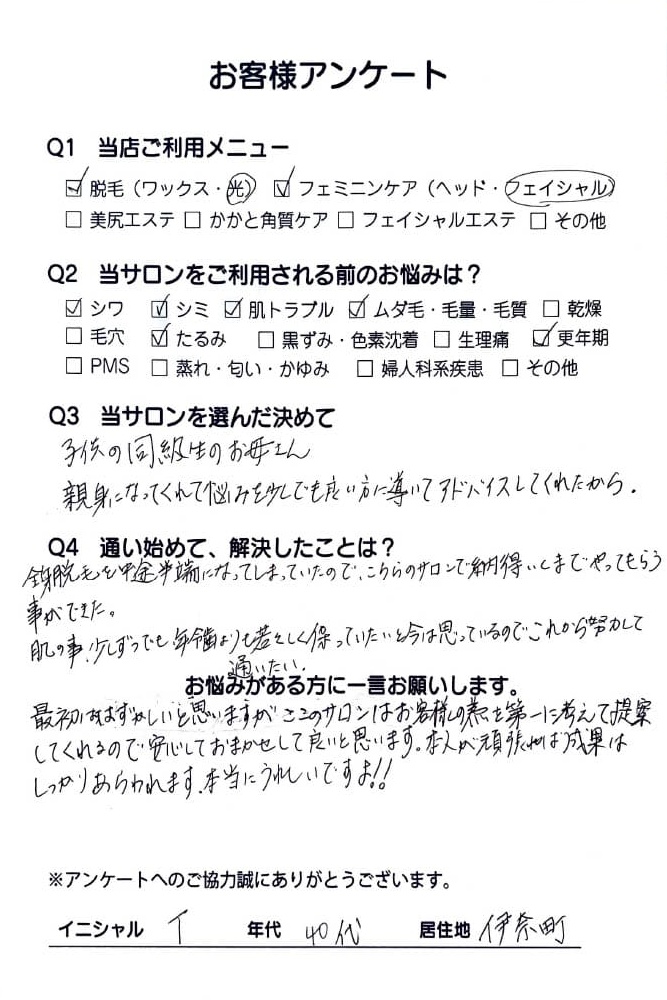 お客様アンケート
Q1 当店ご利用メニュー
☑ 脱毛（ワックス・光） ☑ フェミニンケア（ヘッド・フェイシャル）
☐ 美尻エステ ☐ かかと角質ケア ☐ フェイシャルエステ ☐ その他
Q2 当サロンをご利用される前のお悩みは？
☑ シワ ☑ シミ ☑ 肌トラブル ☑ ムダ毛・毛量・毛質 ☐ 乾燥
☐ 毛穴 ☑ たるみ ☐ 黒ずみ・色素沈着 ☐ 生理痛 ☑ 更年期
☐ PMS ☐ 蒸れ・匂い・かゆみ ☐ 婦人科系疾患 ☐ その他
Q3 当サロンを選んだ決めて
子供の同級生のお母さん
親身になってくれて悩みを少しでも良い方に導いてアドバイスしてくれたから。
Q4 通い始めて、解決したことは？
全身脱毛を中途半端になってしまっていたので、こちらのサロンで納得いくまでやってもらう
事ができた。
肌の事、少しずつでも年齢よりも若々しく保っていたいと今は思っているのでこれから努力して
通いたい。
お悩みがある方に一言お願いします。
最初ははずかしいと思いますが ここのサロンはお客様の事を第一に考えて提案
してくれるので安心しておまかせして良いと思います。本人が頑張れば成果は
しっかりあらわれます。本当にうれしいですよ!!
※アンケートへのご協力誠にありがとうございます。
イニシャル T 年代 40代 居住地 伊奈町